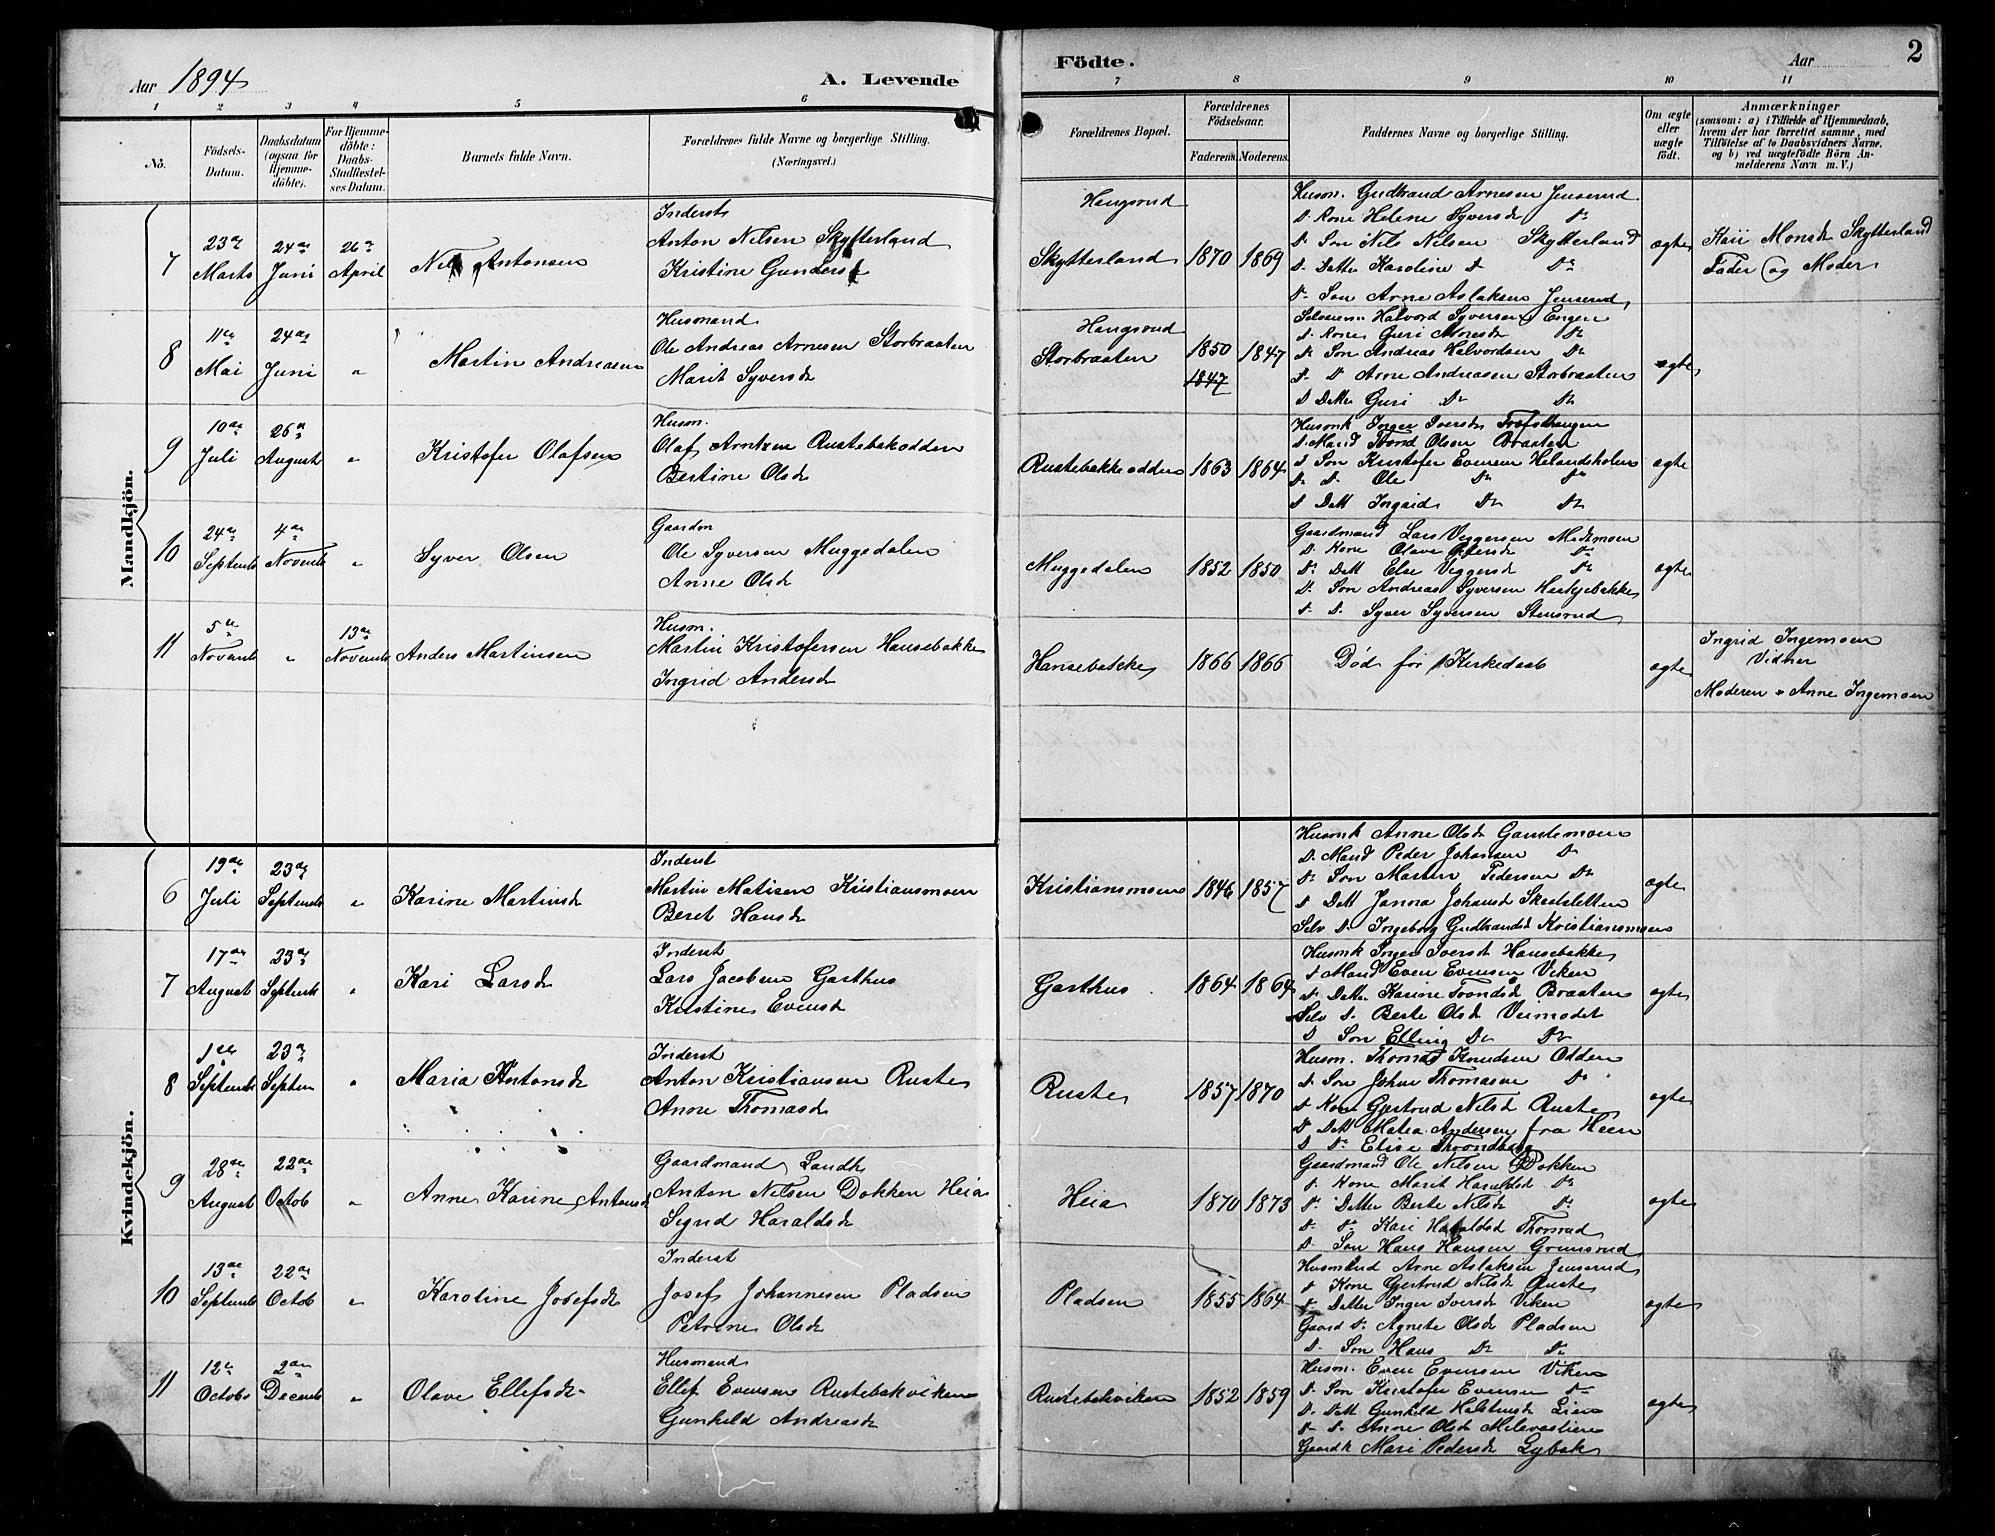 Aar 1894
A. Levende
Födte.
Aar
2
1 2 3 4 5 6 7 8 9 10 11
No.
Födsels-Datum.
Daabsdatum (ogsaa for Hjemmedöbte).
For Hjemmedöbte: Daabs-Stadfestelses Datum.
Barnets fulde Navn.
Forældrenes fulde Navne og borgerlige Stilling. (Næringsvei.)
Forældrenes Bopæl.
Forældrenes Födselsaar.
Faderens. Moderens.
Faddernes Navne og borgerlige Stilling.
Om ægte eller uægte födt.
Anmærkninger
(saasom: a) i Tilfælde af Hjemmedaab, hvem der har forrettet samme, med Tilföielse af to Daabsvidners Navne, og b) ved uægtefödte Börn Anmelderens Navn m. V.)
Mandkjön.
7
23de Marts
24de Juni
26de April
Nils Antonsen
Inderst
Anton Nilsen Skytterland
Kristine Gundersd
Haugsrud
Skytterland
1870 1869
Husm. Gudbrand Arnesen Jenserud
D. Kone Helene Syversd Do
D. Søn Nils Nilsen Skytterland
D. Datter Karoline D. Do
D. Søn Arne Aslaksen Jenserud
ægte
Kari Monsd Skytterland
Fader og Moder
8
11te Mai
24de Juni
"
Martin Andreasen
Husmand
Ole Andreas Arnesen Storbraaten
Marit Syversd
Haugsrud
Storbraaten
1850 1847
1847
Halvord Syversen Engen
D. Kone Guri Monsd Do
D. Søn Andreas Halvordsen Do
D. D. Arne Andreasen Storbraaten
D. Datter Guri Do Do
ægte
9
10de Juli
26de August
"
Kristofer Olafsen
Husm.
Olaf Arntsen Rustebakodden
Bertine Olsd
Rustebakkeodden
1863 1864
Husmk Inger Iversd
D. Mand Trond Olsen Braaten
D. Søn Kristofer Evensen Helandsholm
D. D. Ole Do Do
D. Datt Ingrid Do Do
ægte
10
24de Septemb
4de Novemb
"
Syver Olsen
Gaardm
Ole Syversen Muggedalen
Anne Olsd
Muggedalen
1852 1850
Gaardmand Lars Viggersen Midtmoen
D. Kone Olave Petersd Do
D. Datt Else Viggersd Do
D. Søn Andreas Syversen
D. D. Syver Syversen Stensrud
ægte
11
5te Novemb
"
13de Novemb
Anders Martinsen
Husm.
Martin Kristofersen Hansebakke
Ingrid Andersd
Hansebakke
1866 1866
Død før Kirkedaab
ægte
Ingrid Ingemoen
Vidner
Moderen & Anne Ingemoen
Kvindekjön.
6
19de Juli
23de Septemb
"
Karine Martinsd
Inderst
Martin Matisen Kristiansmoen
Beret Hansd
Kristiansmoen
1846 1857
Husmk Anne Olsd
D. Mand Peder Johansen Do
D. Søn Martin Pedersen Do
D. Datt Janna Johansd
Selv D. Ingeborg Gudbrandsd Kristiansmoen
ægte
7
17de August
23de Septemb
"
Kari Larsd
Inderst
Lars Jacobsen Garthus
Kristine Evensd
Garthus
1864 1864
Husmk Inger Iversd Hansebakke
D. Mand Even Evensen Viken
D. Datter Karine Trondsd Braaten
Selv D. Berte Olsd
D. Søn Elling Do Do
ægte
8
1ste Septemb
23de Septem
"
Maria Antonsd
Inderst
Anton Kristiansen Ruste
Anne Thomasd
Ruste
1857 1870
Husm. Thomas Knudsen Odden
D. Søn Johan Thomasen Do
D. Kone Gjertrud Nilsd Ruste
D. Datt Matea Andersen fra Heen
D. Do Elise
ægte
9
28de August
22de Octob
"
Anne Karine Antonsd
Gaardmand Landh
Anton Nilsen Dokken Heia
Sigrid Haraldsd
Heia
1870 1873
Gaardmand Ole Nilsen Dokken
D. Kone Marit Haraldsd Do
D. Datter Berte Nilsd Do
D. Do Kari Haraldsd Thorsrud
D. Søn Hans Hansen Grimsrud
ægte
10
13de Septemb
22de Octob
"
Karoline Josefsd
Inderst
Josef Johannesen Pladsen
Petrine Olsd
Pladsen
1855 1864
Husmand Arne Aslaksen Jenserud
D. Kone Gjertrud Nilsd Ruste
D. Datter Inger Iversd Viken
Gaard D. Agnete Olsd Pladsen
D. Søn Hans Do Do
ægte
11
12te Octobr
2den Decemb
"
Olave Ellefsd
Husmand
Ellef Evensen Rustebakviken
Gunhild Andreasd
Rustebakviken
1852 1859
Husm. Even Evensen Viken
D. Søn Kristofer Evensen Do
D. Datt Gunhild Halstensd Lien
D. D. Anne Olsd
Gaardk Mari Pedersd Lybæk
ægte